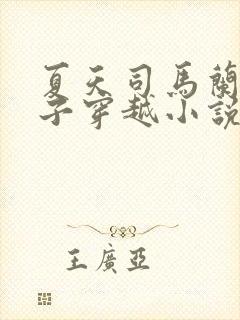 夏天司馬蘭
子穿越小說
王廣亞